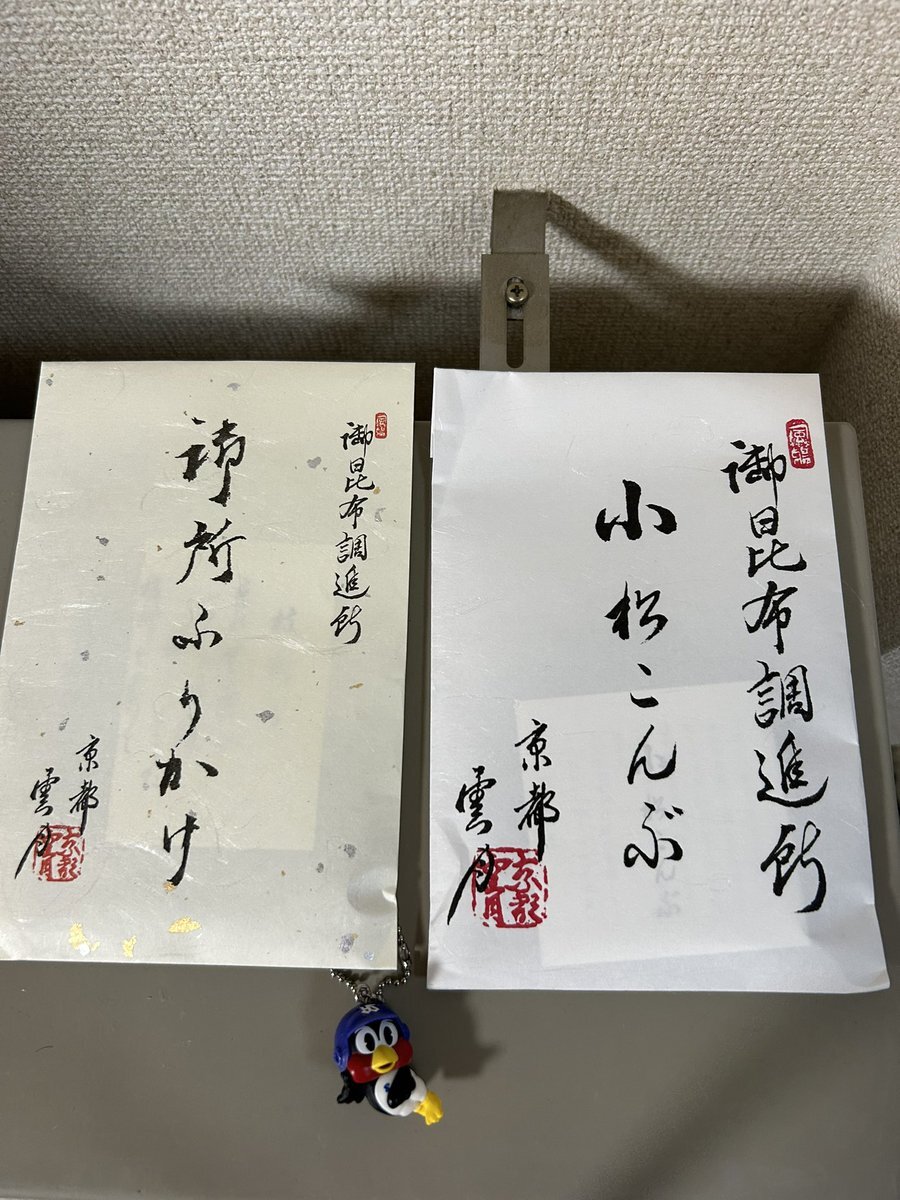 御昆布調進所
御所ふりかけ
京都
雲月
御昆布調進所
小松こんぶ
京都
雲月
京都
雲月